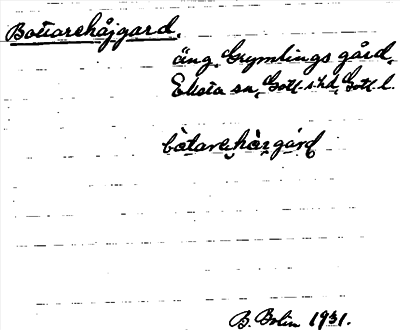 Botarehåjgard.
äng, Grymlings gård,
Eksta sn, Gotl. s. hd, Gotl. l.
B. Bolin 1931.